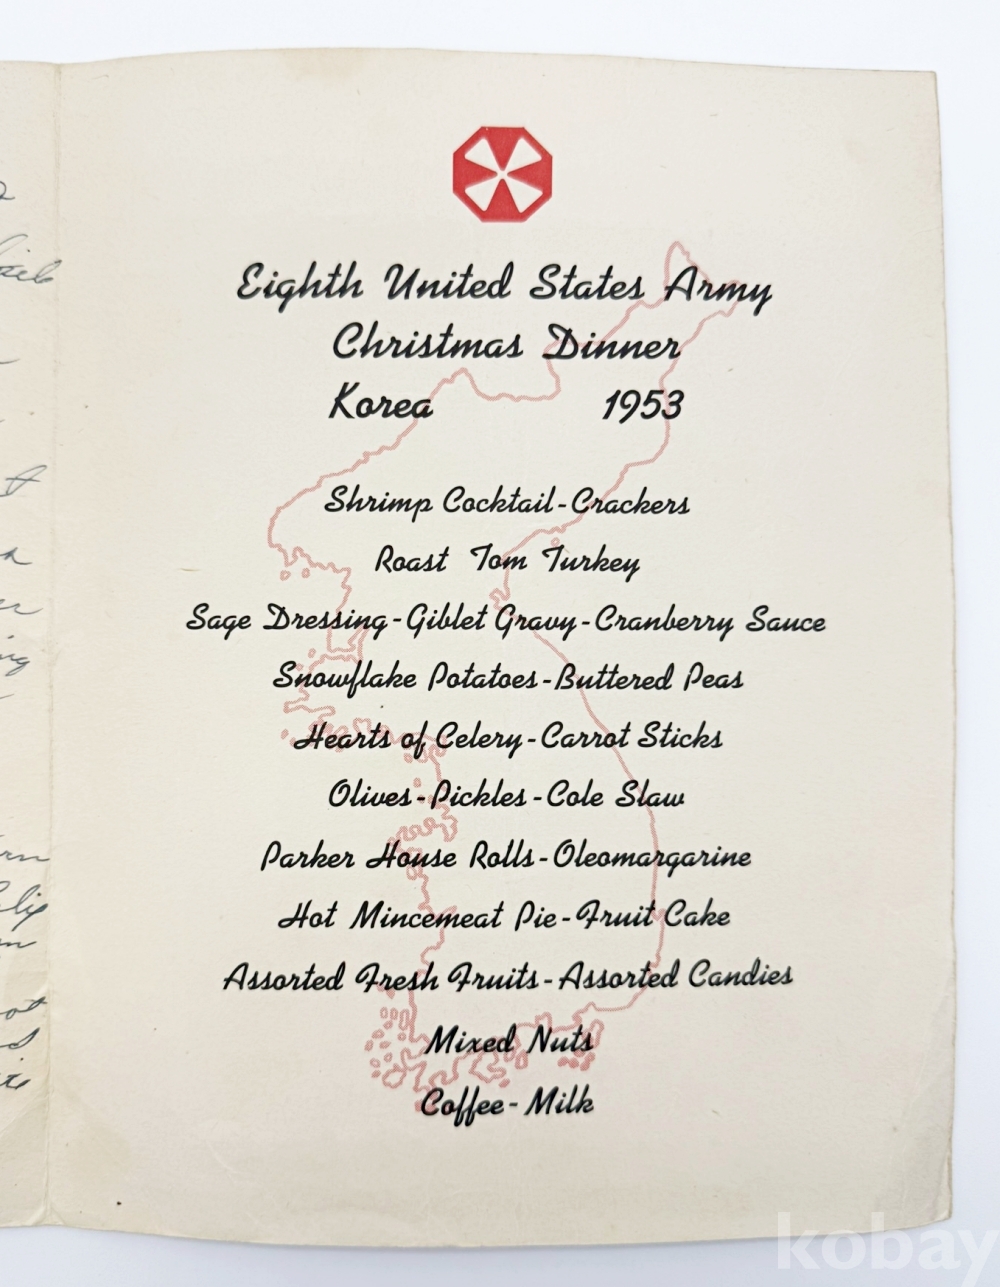 Eighth United States Army
Christmas Dinner
Korea 1953
Shrimp Cocktail-Crackers
Roast Tom Turkey
Sage Dressing-Giblet Gravy-Cranberry Sauce
Snowflake Potatoes-Buttered Peas
Hearts of Celery-Carrot Sticks
Olives-Pickles-Cole Slaw
Parker House Rolls-Oleomargarine
Hot Mincemeat Pie-Fruit Cake
Assorted Fresh Fruits-Assorted Candies
Mixed Nuts
Coffee-Milk
kobay